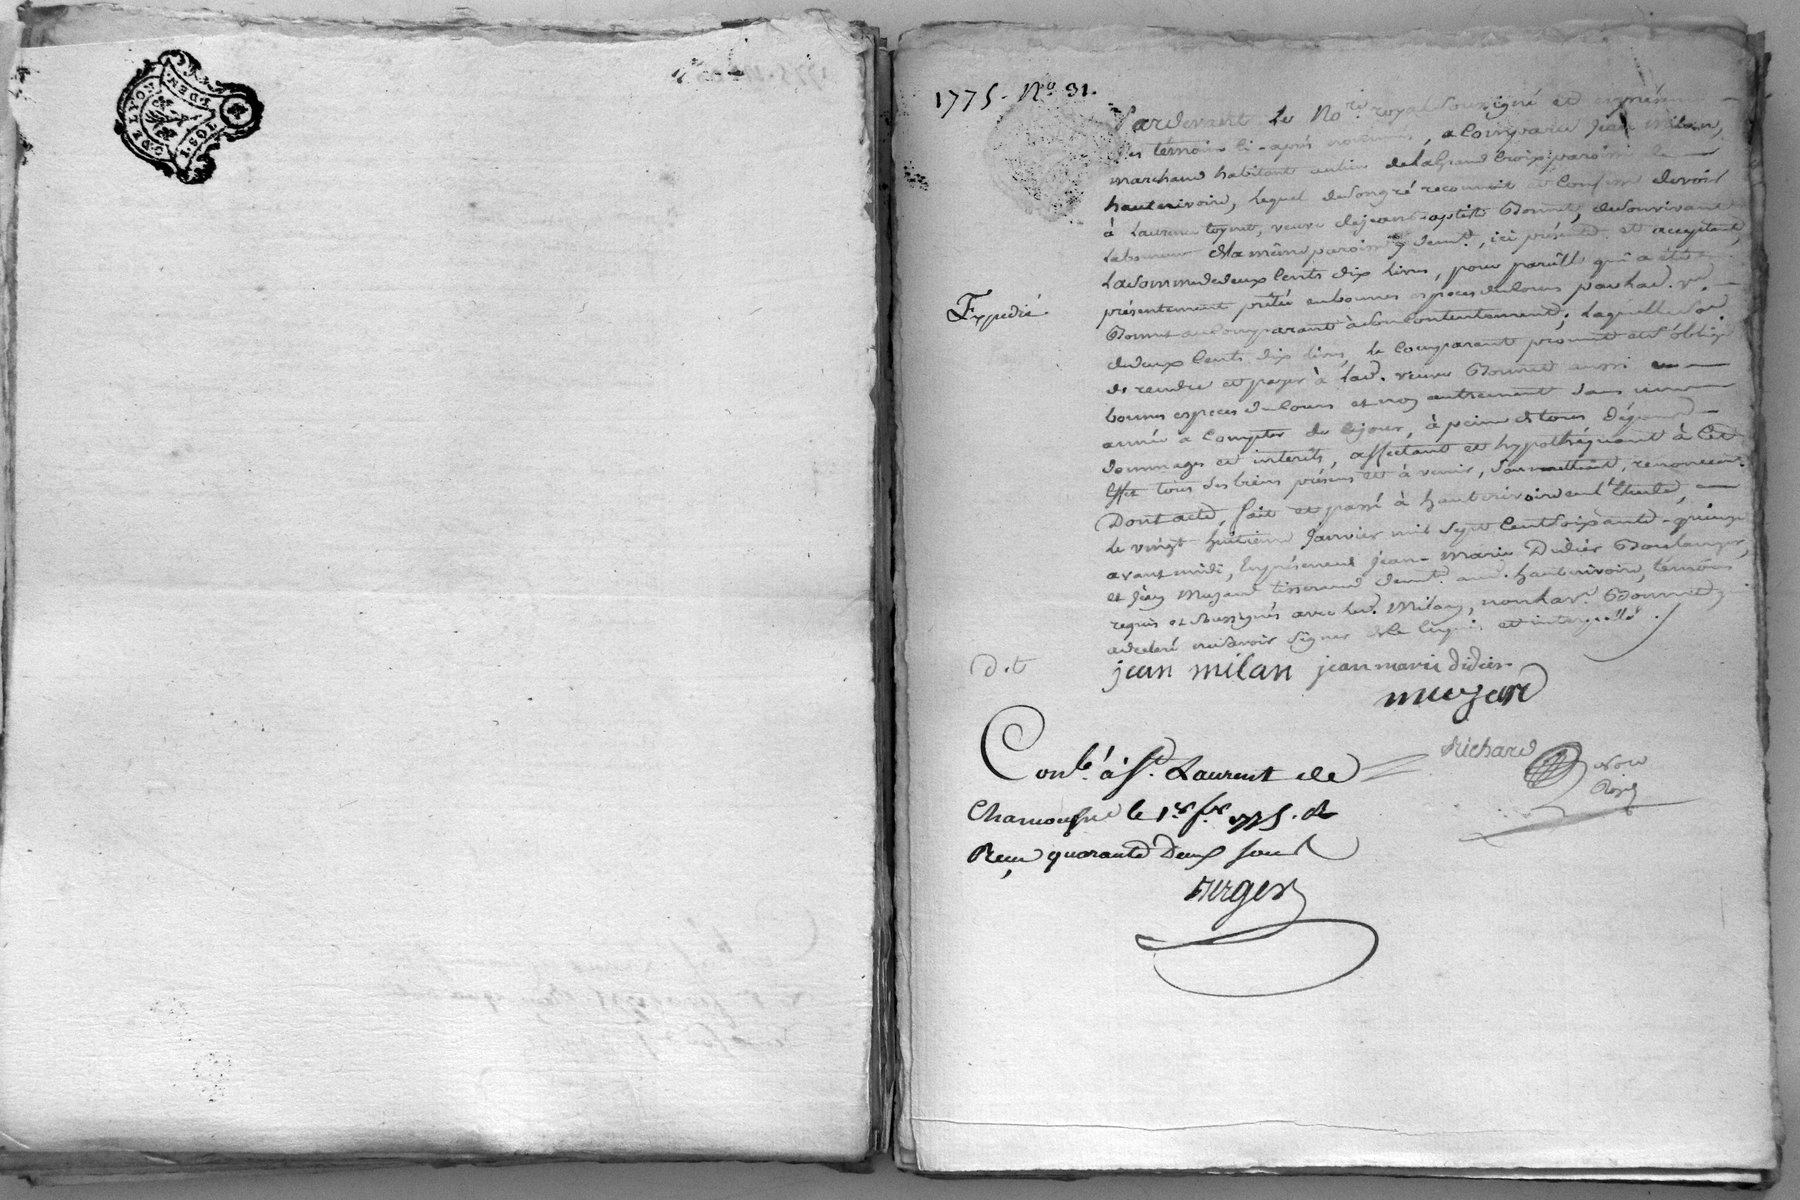 1775. No. 31.
Pardevant Le No.re royal Soussigné et en présence
des témoins ci-après nommés, a Comparu Jean Milan,
marchand habitant au lieu de La Grand Croix paroisse de
hauterivoire, Lequel de Son gré reconnoit et Confesse devoir
à Laurence toynet, veuve de jean baptiste Bonnet, de Son vivant
Laboureur de la même paroisse y demt., ici présente et acceptant,
La Somme de deux Cents dix Livres, pour pareille qui a été
présentement prêtée en bonnes espèces de Cours par lad. ve.
Expedié
Bonnet au Comparant à Son Contentement; Laquelle So.e
de deux Cents dix Livres, le Comparant promet et S'oblige
de rendre et payer à Lad. veuve Bonnet aussi en
bonnes espèces de Cours et non autrement dans une
année a Compter de Ce jour, à peine de tous dépens
dommages et intérêts, affectant et hypothéquant à Cet
effet tous Ses biens présens et à venir, Soumettant, renonceant.
Dont acte, fait et passé à hauterivoire en l'Etude,
Le vingt huitieme Janvier mil Sept Cent Soixante-quinze
avant midi, En présence de Jean-Marie Didier Boulanger,
et Jean Mazard tisserand demt. aud. hauterivoire, témoins
requis et Soussignés avec led. Milan, non lad. Bonnet
a declaré ne Savoir Signer de Ce Enquise et interpellée.
D.t
jean milan jean marie didier
muzard
Richard Nore
Royal
Conlé. à St. Laurent de
Chamousset le 1er fer 1775. &
Reçu quarante Deux Sous
Berger